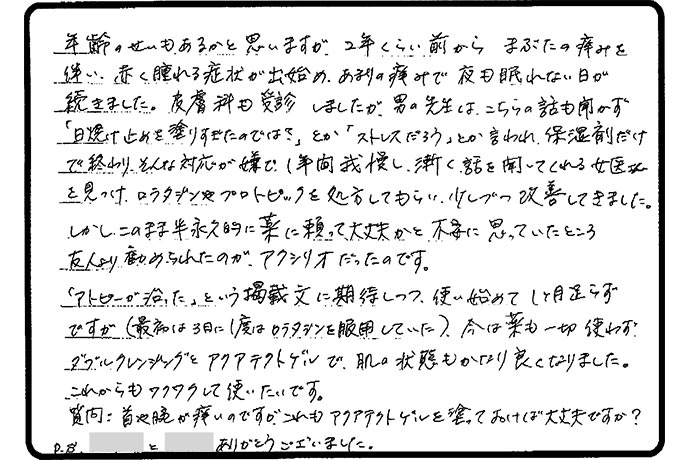 年齢のせいもあるかと思いますが、2年くらい前から まぶたの痒みを
伴い、赤く腫れる症状が出始め、あまりの痒みで 夜も眠れない日が
続きました。皮膚科も受診 しましたが、男の先生は、こちらの話も聞かず
「日焼け止めを塗りすぎたのでは?」とか「ストレスだろう」とか言われ、保湿剤だけ
で終わり、そんな対応が嫌で、1年間我慢し、漸く話を聞いてくれる女医さん
を見つけ、ロラタジンやプロトピックを処方してもらい、少しづつ改善してきました。
しかし、このまま半永久的に薬に頼って大丈夫かと不安に思っていたところ
友人より勧められたのが、アクシリオだったのです。
「アトピーが治った」という掲載文に期待しつつ、使い始めて1ヶ月足らず
ですが(最初は3日に1度はロラタジンを服用していた)、今は薬も一切使わず
ダブルクレンジングとアクアテクトゲルで、肌の状態もかなり良くなりました。
これからもワクワクして使いたいです。
質問:首や腕が痒いのですが、これもアクアテクトゲルを塗っておけば大丈夫ですか?
P.S. と ありがとうございました。